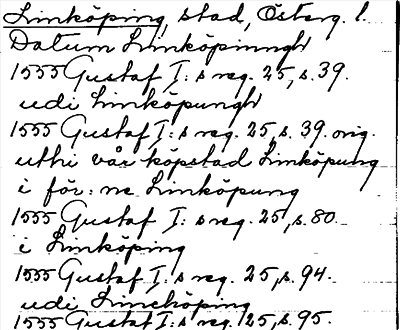 Linköping, stad, Österg. l.
Datum Linnköpinngh
1555 Gustaf I:s reg. 25, s. 39.
udi Linköpungh
1555 Gustaf I:s reg. 25, s. 39. orig.
uthi vår köpstad Linköpung
i för: ne Linköpung
1555 Gustaf I:s reg. 25, s. 80.
i Linköping
1555 Gustaf I:s reg. 25, s. 94.
udi Linchöping
1555 Gustaf I:s reg. 25, s. 95.